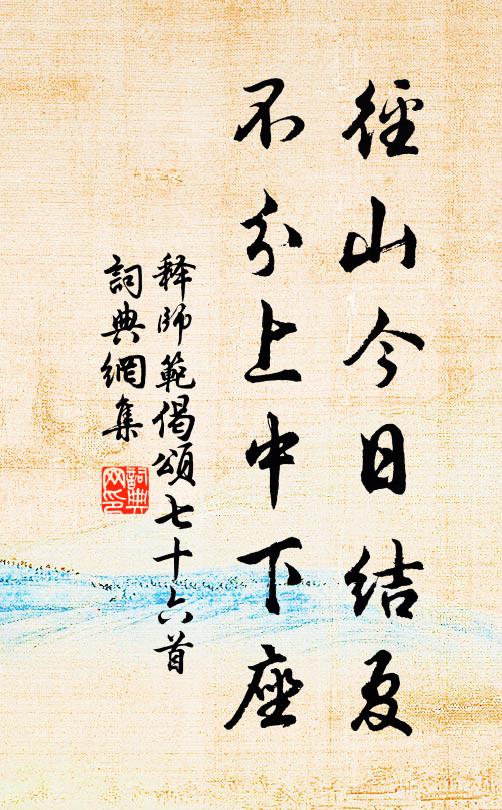 徑山今日結夏
不分上中下座
释師範偈頌七十六首
詞典網集
詞典
网印